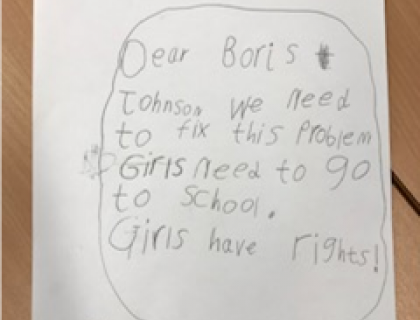 Dear Boris
Johnson we need
to fix this problem
Girls need to go
to school.
Girls have rights!